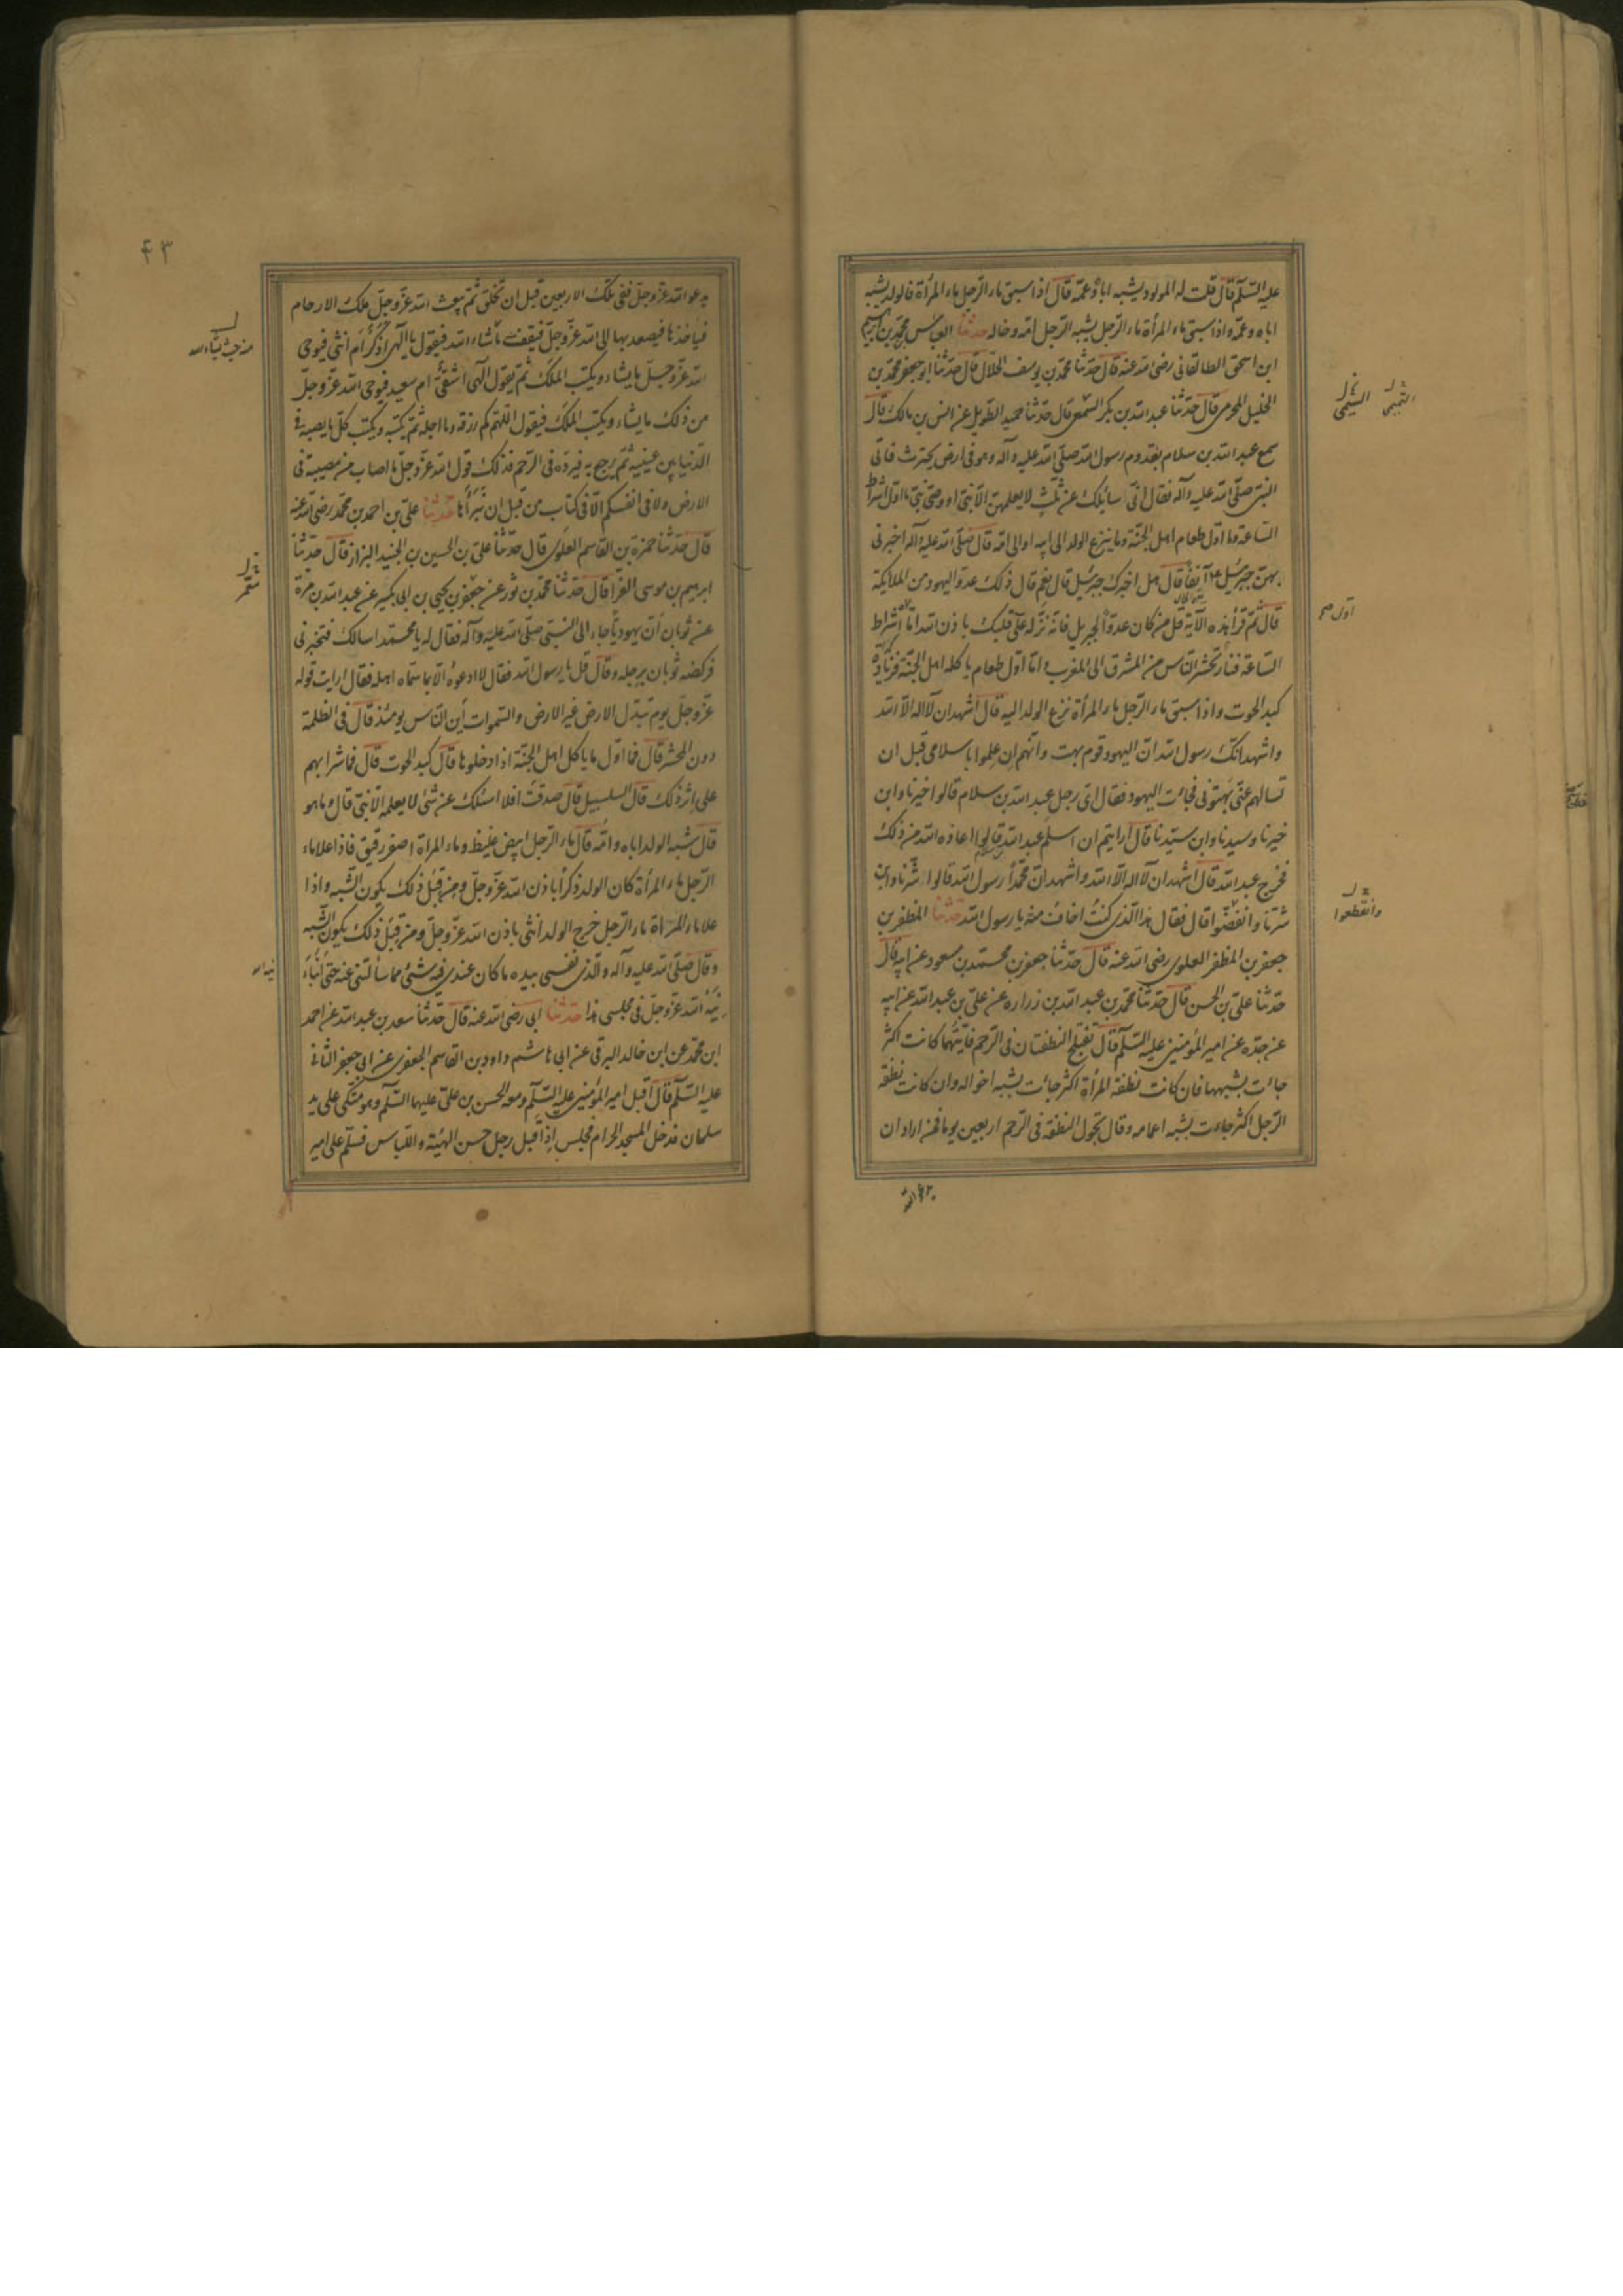 عليه السلم قال قلت له المولود يشبه اباه وعمه قال اذا سبق ماء الرجل ماء المرأة فالولد يشبه
اباه وعمه واذا سبق ماء المرأة ماء الرجل يشبه الرجل امه وخاله حدثنا ابو العباس محمد بن ابرهيم
ابن اسحق الطالقاني رضى الله عنه قال حدثنا محمد بن يوسف الخلال قال حدثنا ابو جعفر محمد بن
الخليل المخرمى قال حدثنا عبد الله بن بكر السمعى قال حدثنا حميد الطويل عن انس بن مالك قال
سمع عبد الله بن سلام بقدوم رسول الله صلى الله عليه وآله وهو فى ارض يحترث فاتى
النبى صلى الله عليه وآله فقال انى سائلك عن ثلث لا يعلمهن الا نبى او وصى نبى ما اول اشراط
الساعة وما اول طعام اهل الجنة وما ينزع الولد الى ابيه او الى امه قال صلى الله عليه وآله اخبرنى
بهن جبرئيل آنفا قال هل اخبرك جبرئيل قال نعم قال ذلك عدو اليهود من الملايكة
قال ثم قرأ هذه الآية قل من كان عدوا لجبريل فانه نزله على قلبك باذن الله اما اشراط
الساعة فنار تحشر الناس من المشرق الى المغرب واما اول طعام ياكله اهل الجنة فزيادة
كبد الحوت واذا سبق ماء الرجل ماء المرأة نزع الولد اليه قال اشهد ان لا اله الا الله
واشهد انك رسول الله ان اليهود قوم بهت وانهم ان علموا باسلامى قبل ان
تسالهم عنى بهتونى فجاءت اليهود فقال اى رجل عبد الله بن سلام قالوا خيرنا وابن
خيرنا وسيدنا وابن سيدنا قال ارايتم ان اسلم عبد الله قالوا اعاذه الله من ذلك
فخرج عبد الله قال اشهد ان لا اله الا الله واشهد ان محمدا رسول الله قالوا شرنا وابن
شرنا وانفضوا قال فقال هذا الذى كنت اخاف منه يا رسول الله حدثنا المظفر بن
جعفر بن المظفر العلوى رضى الله عنه قال حدثنا جعفر بن محمد بن مسعود عن ابيه قال
حدثنا على بن الحسن قال حدثنا محمد بن عبد الله بن زراره عن على بن عبد الله عن ابيه
عن جده عن امير المؤمنين عليه السلم قال تعتلج النطفتان فى الرحم فايتهما كانت اكثر
جاءت بشبهها فان كانت نطفة المرأة اكثر جاءت بشبه اخواله وان كانت نطفة
الرجل اكثر جاءت بشبه اعمامه وقال تجول النطفة فى الرحم اربعين يوما فمن اراد ان
وانقطعوا
يدعو الله
۴۳
يدعو الله عز وجل ففى تلك الاربعين قبل ان تخلق ثم يبعث الله عز وجل ملك الارحام
فياخذها فيصعد بها الى الله عز وجل فيقف ما شاء الله فيقول يا الهى اذكر ام انثى فيوحى
الله عز وجل ما يشاء ويكتب الملك ثم يقول الهى اشقى ام سعيد فيوحى الله عز وجل
من ذلك ما يشاء ويكتب الملك فيقول اللهم كم رزقه وما اجله ثم يكتبه ويكتب كل ما يصيبه فى
الدنيا بين عينيه ثم يرجع به فيرده فى الرحم فذلك قول الله عز وجل ما اصاب من مصيبة فى
الارض ولا فى انفسكم الا فى كتاب من قبل ان نبرأها حدثنا على بن احمد بن محمد رضى الله عنه
قال حدثنا حمزة بن القاسم العلوى قال حدثنا على بن الحسين بن الجنيد البزاز قال حدثنا
ابرهيم بن موسى الفرا قال حدثنا محمد بن ثور عن جعفر بن يحيى بن ابى بكير عن عبد الله بن مرة
عن ثوبان ان يهوديا جاء الى النبى صلى الله عليه وآله فقال له يا محمد اسالك فتخبرنى
فركضه ثوبان برجله وقال قل يا رسول الله فقال لا ادعوه الا بما سماه اهله فقال ارايت قوله
عز وجل يوم تبدل الارض غير الارض والسموات اين الناس يومئذ قال فى الظلمة
دون المحشر قال فما اول ما ياكل اهل الجنة اذا دخلوها قال كبد الحوت قال فما شرابهم
على اثر ذلك قال السلسبيل قال صدقت افلا اسئلك عن شئ لا يعلمه الا نبى قال وما هو
قال شبه الولد اباه وامه قال ماء الرجل ابيض غليظ وماء المراة اصفر رقيق فاذا علا ماء
الرجل ماء المرأة كان الولد ذكرا باذن الله عز وجل ومن قبل ذلك يكون الشبه واذا
علا ماء المرأة ماء الرجل خرج الولد انثى باذن الله عز وجل ومن قبل ذلك يكون الشبه
وقال صلى الله عليه وآله والذى نفسى بيده ما كان عندى فيه شئ مما سألتنى عنه حتى انبأ
نيه الله عز وجل فى مجلسى هذا حدثنا ابى رضى الله عنه قال حدثنا سعد بن عبد الله عن احمد
ابن محمد عن ابن خالد البرقى عن ابى هاشم داود بن القاسم الجعفرى عن ابى جعفر الثانى
عليه السلم قال اقبل امير المؤمنين عليه السلم ومعه الحسن بن على عليهما السلم وهو متكى على يد
سلمان فدخل المسجد الحرام فجلس اذا قبل رجل حسن الهيئة واللباس فسلم على امير
معمر